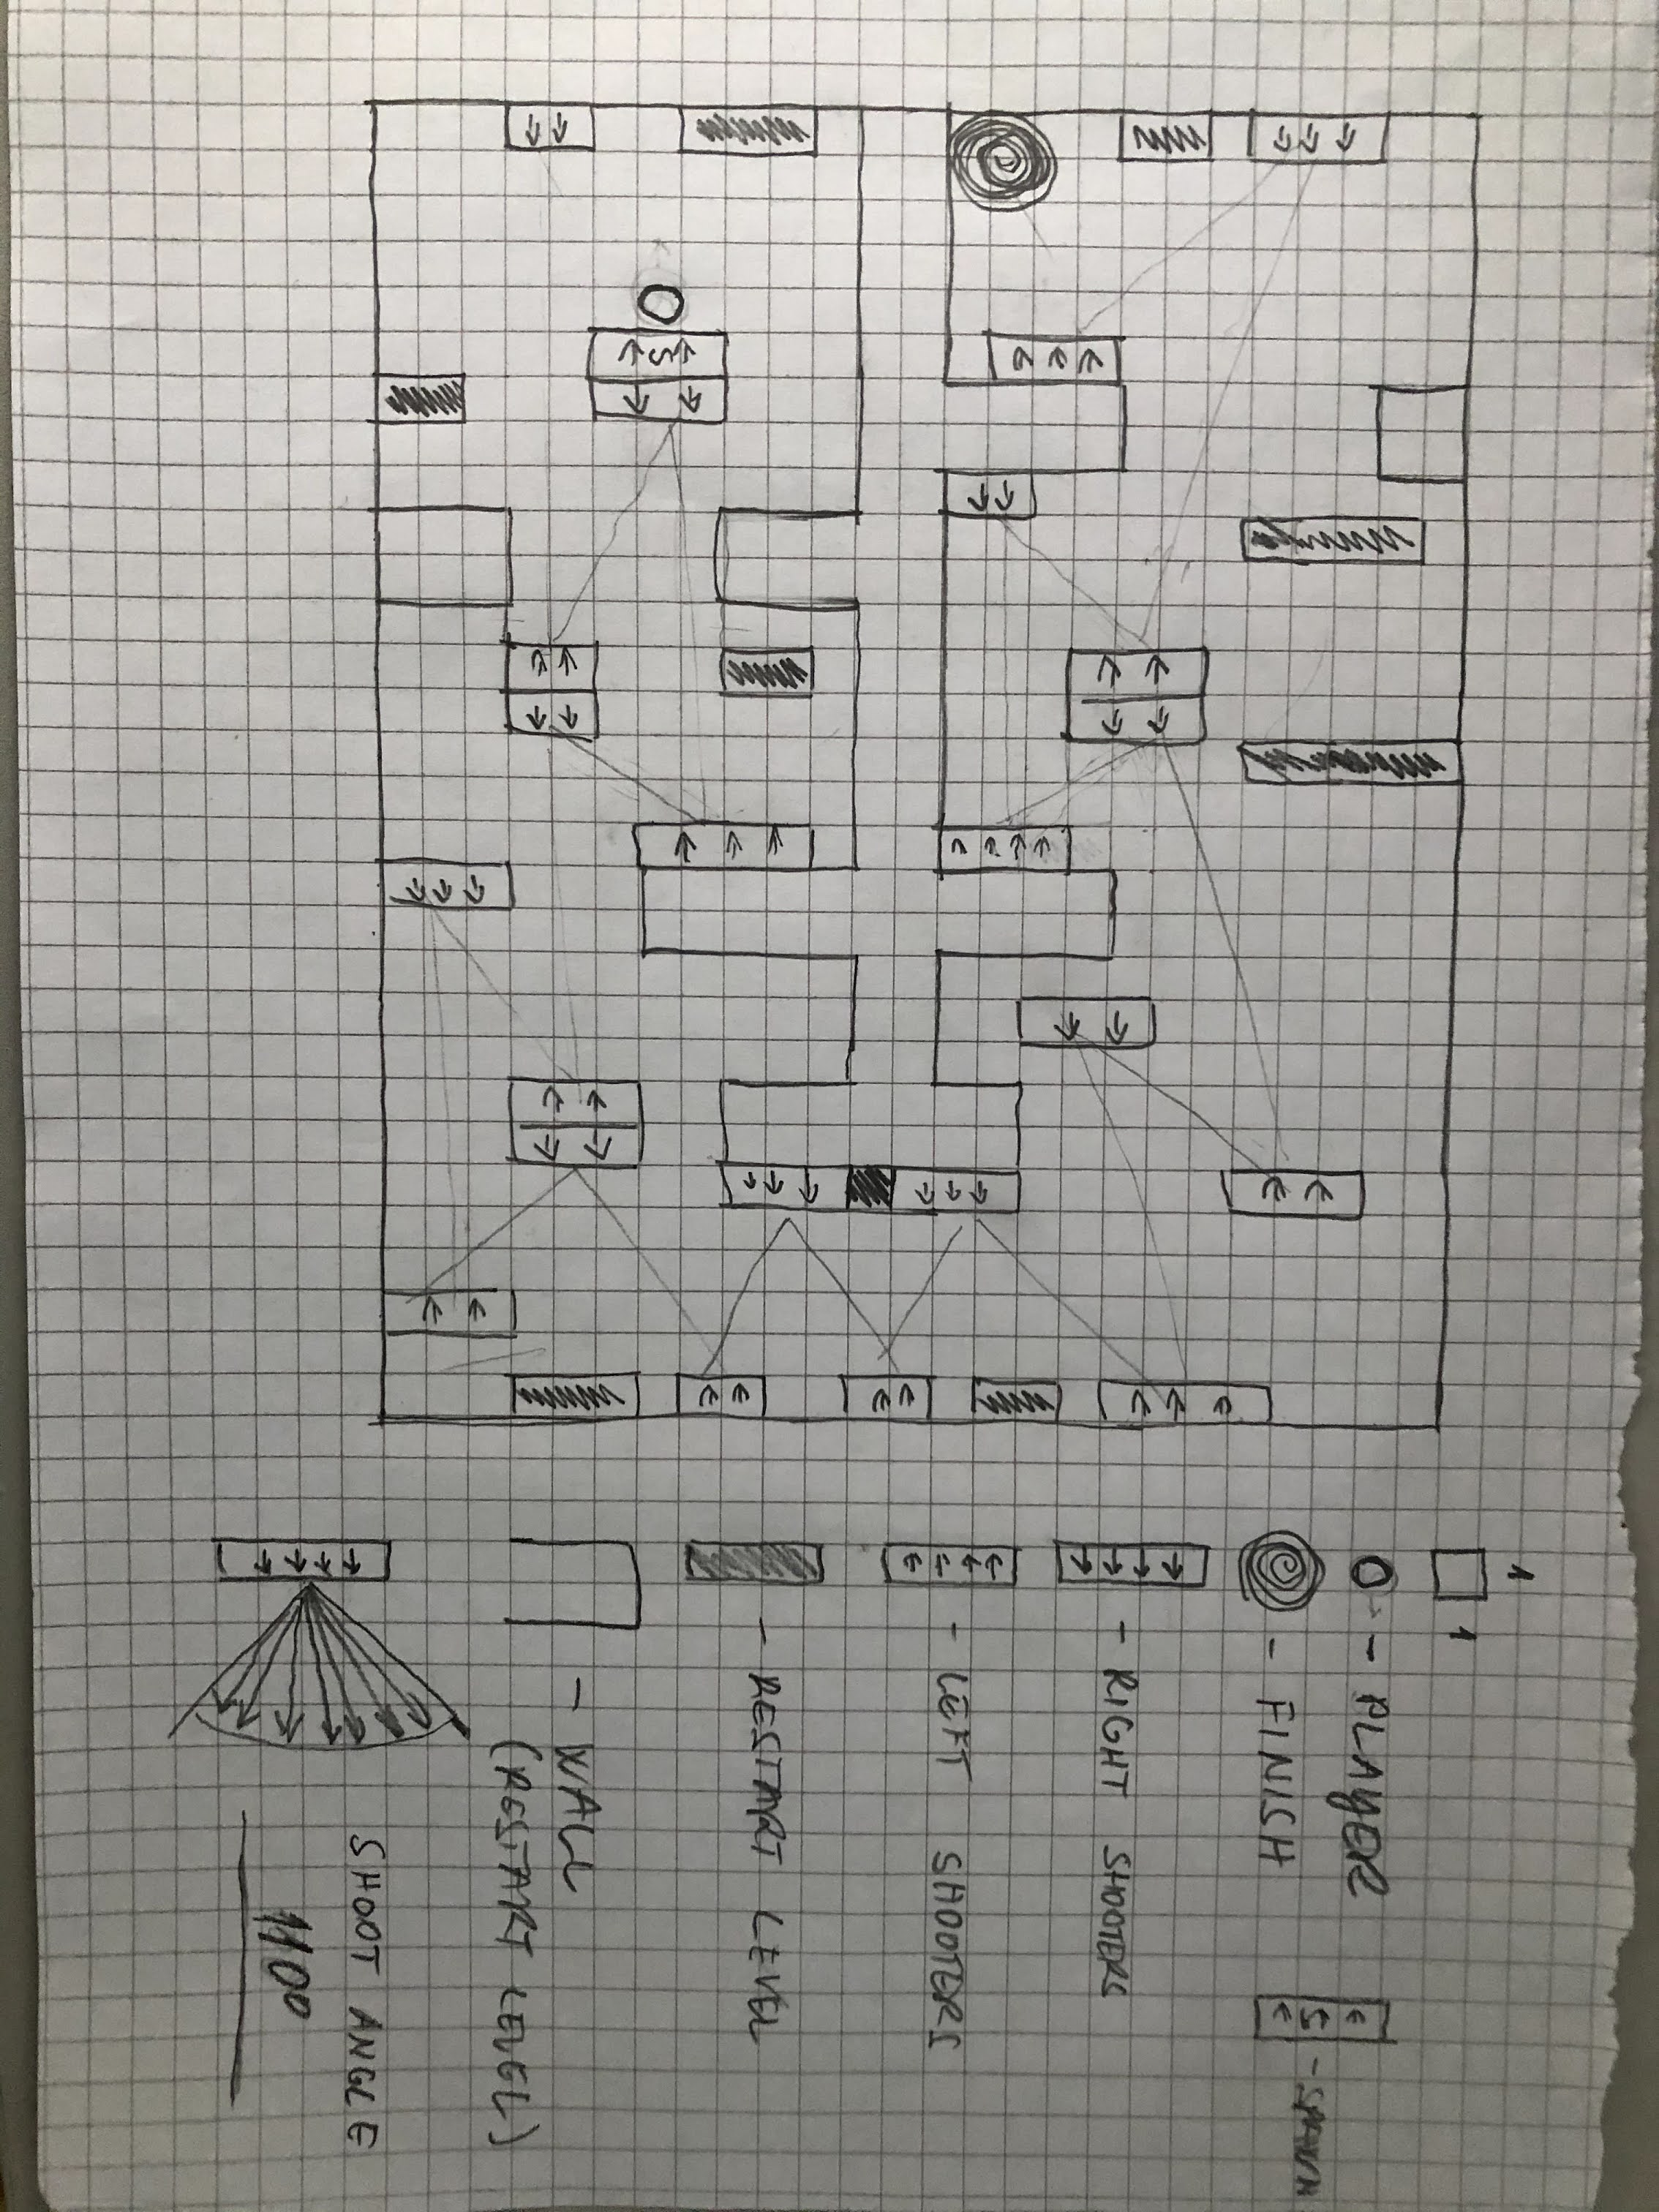 1
1
- PLAYER
- SPAWN
- FINISH
- RIGHT SHOOTERS
- LEFT SHOOTERS
- RESTART LEVEL
S
- WALL
(RESTART LEVEL)
SHOOT ANGLE
110°